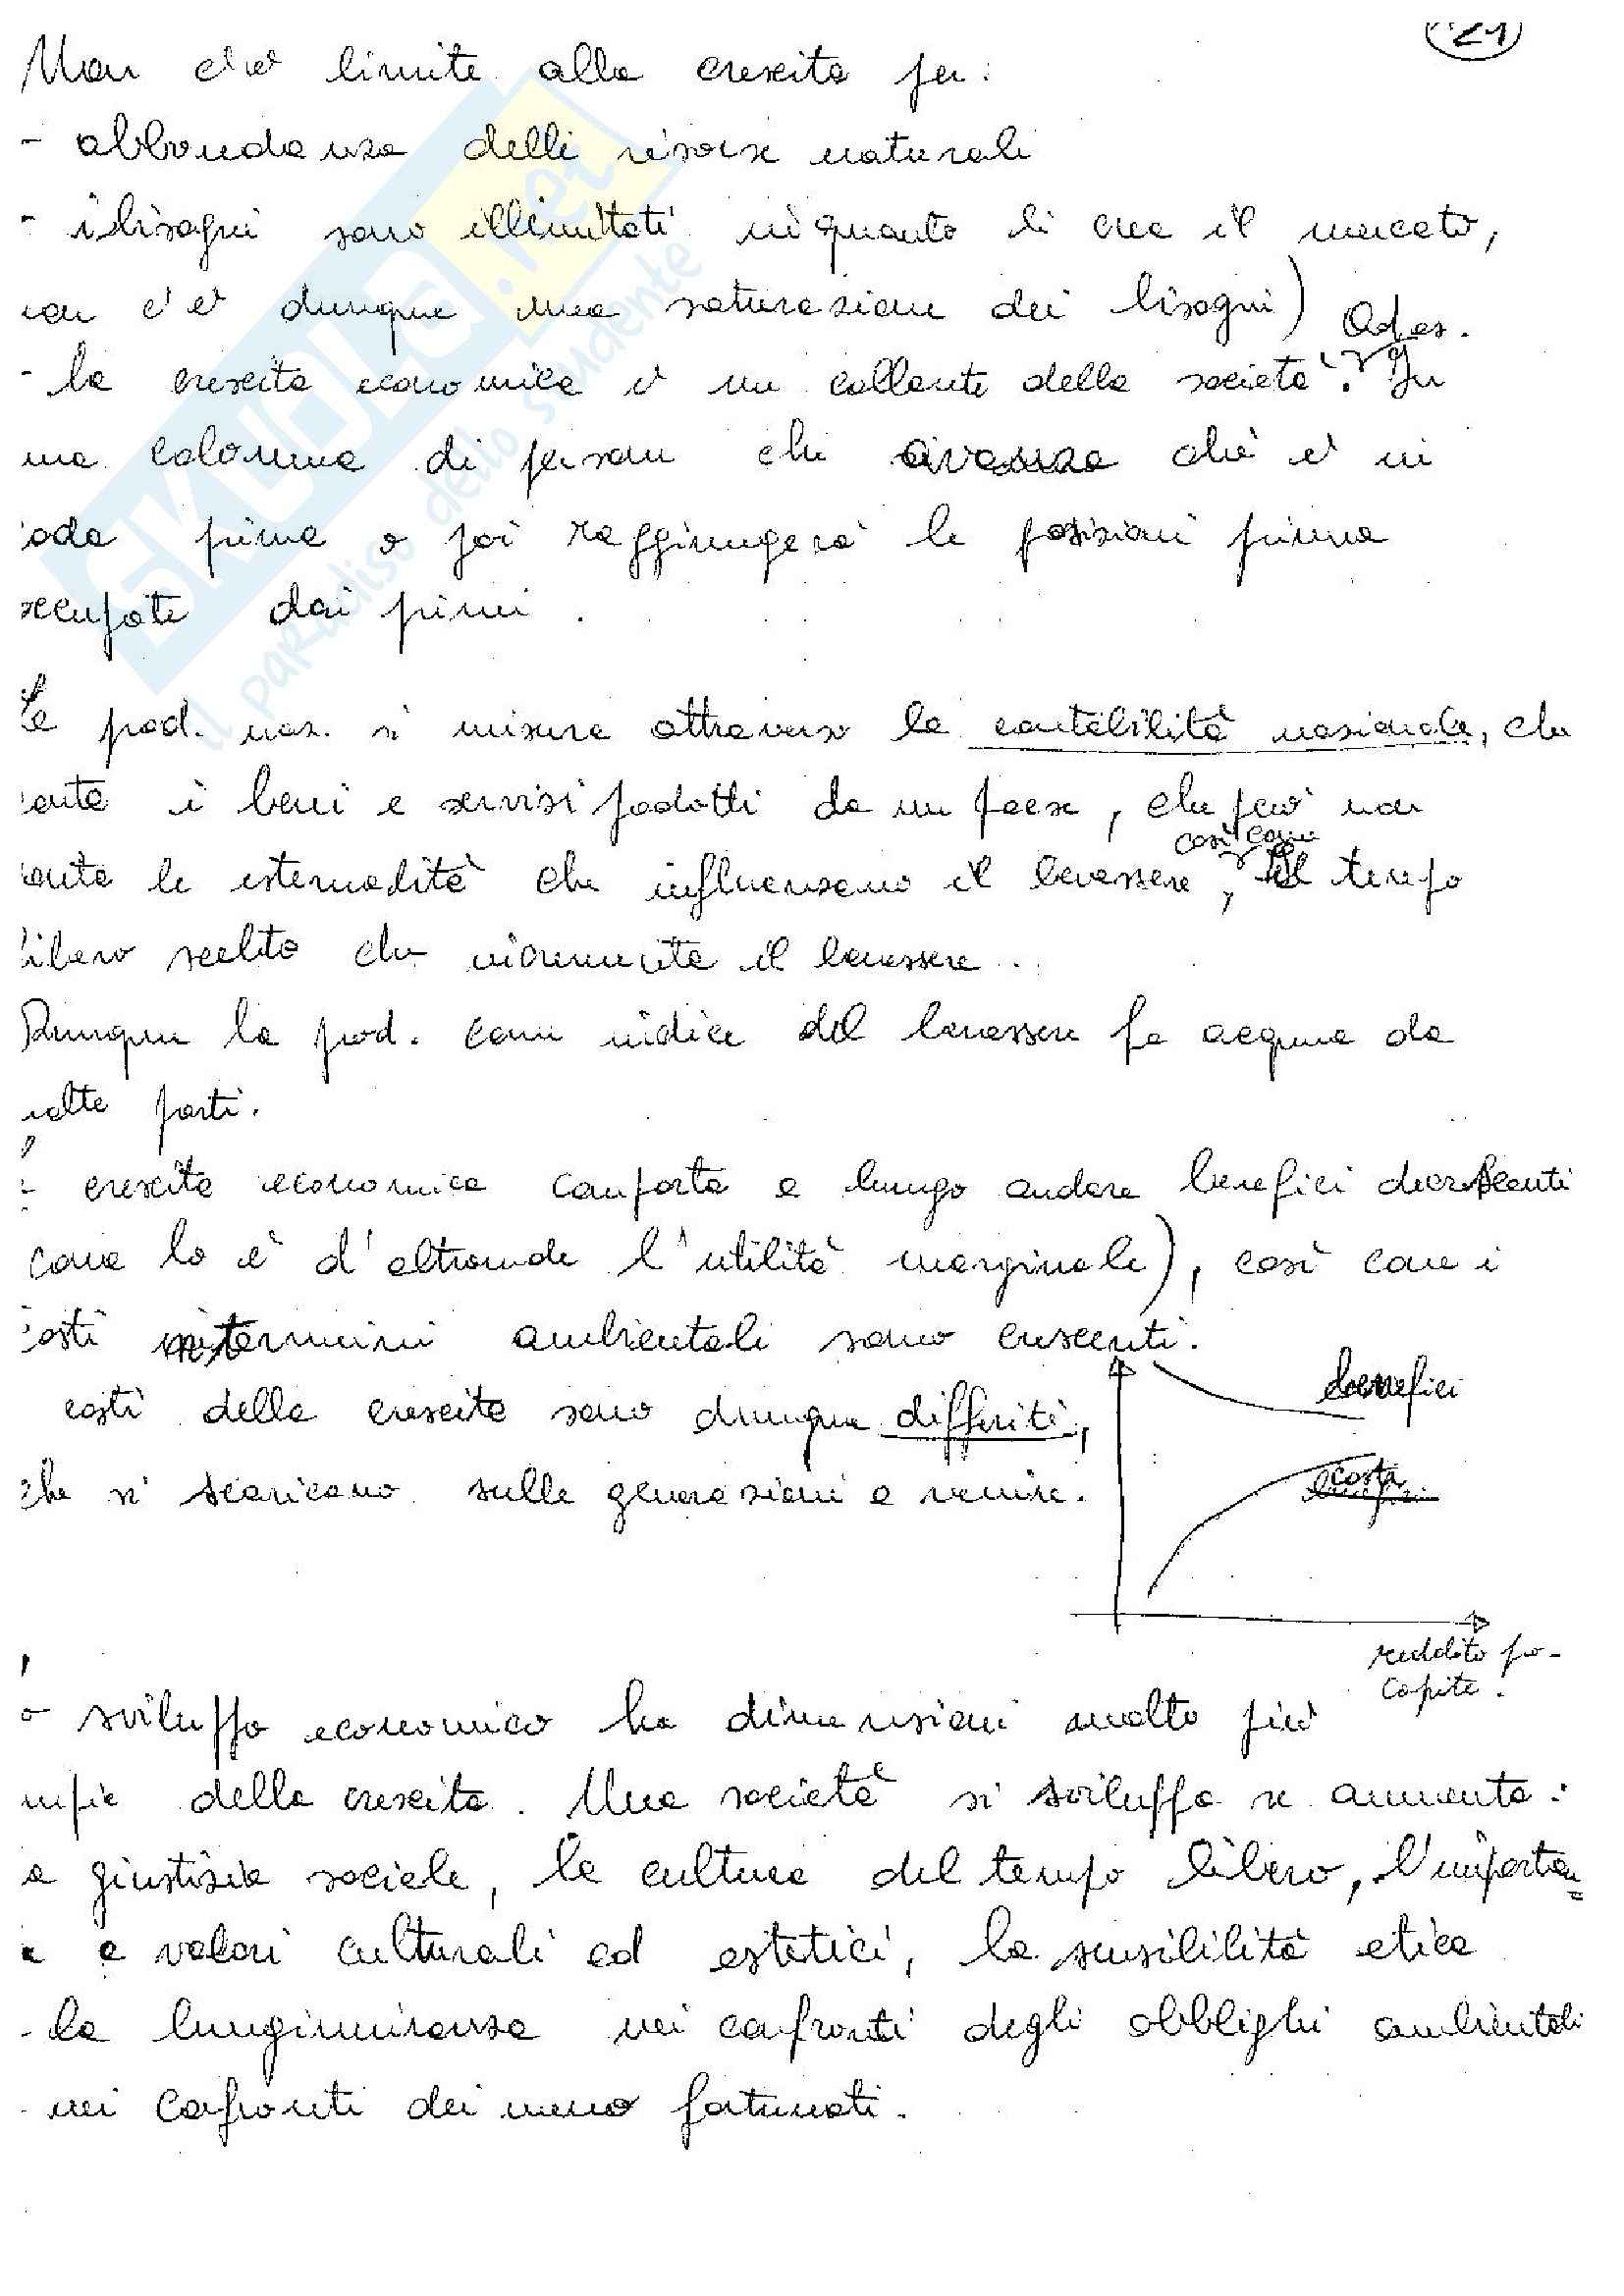 21
Non c'è limite alla crescita per:
- abbondanza delle risorse naturali
- i bisogni sono illimitati in quanto li crea il mercato,
non c'è dunque una saturazione dei bisogni)
Ad es.
- la crescita economica è un collante della società. In
una colonna di persone che avanza chi è in
coda prima o poi raggiungerà le posizioni prima
occupate dai primi.
La prod. naz. si misura attraverso la contabilità nazionale, che
conta i beni e servizi prodotti da un paese, che però non
così come
conta le esternalità che influenzano il benessere, il tempo
libero scelto che incrementa il benessere.
Dunque la prod. come indice del benessere fa acqua da
molte parti.
crescita economica comporta a lungo andare benefici decrescenti
come lo è d'altronde l'utilità marginale), così come i
costi in termini ambientali sono crescenti.
benefici
costi della crescita sono dunque differiti,
costi
che si scaricano sulle generazioni a venire.
reddito pro-
capite.
o sviluppo economico ha dimensioni molto più
ampie della crescita. Una società si sviluppa se aumenta:
a giustizia sociale, la cultura del tempo libero, l'importan=
a valori culturali ed estetici, la sensibilità etica
- la lungimiranza nei confronti degli obblighi ambientali
- nei confronti dei meno fortunati.
SKUOLA.net
il paradiso dello studente